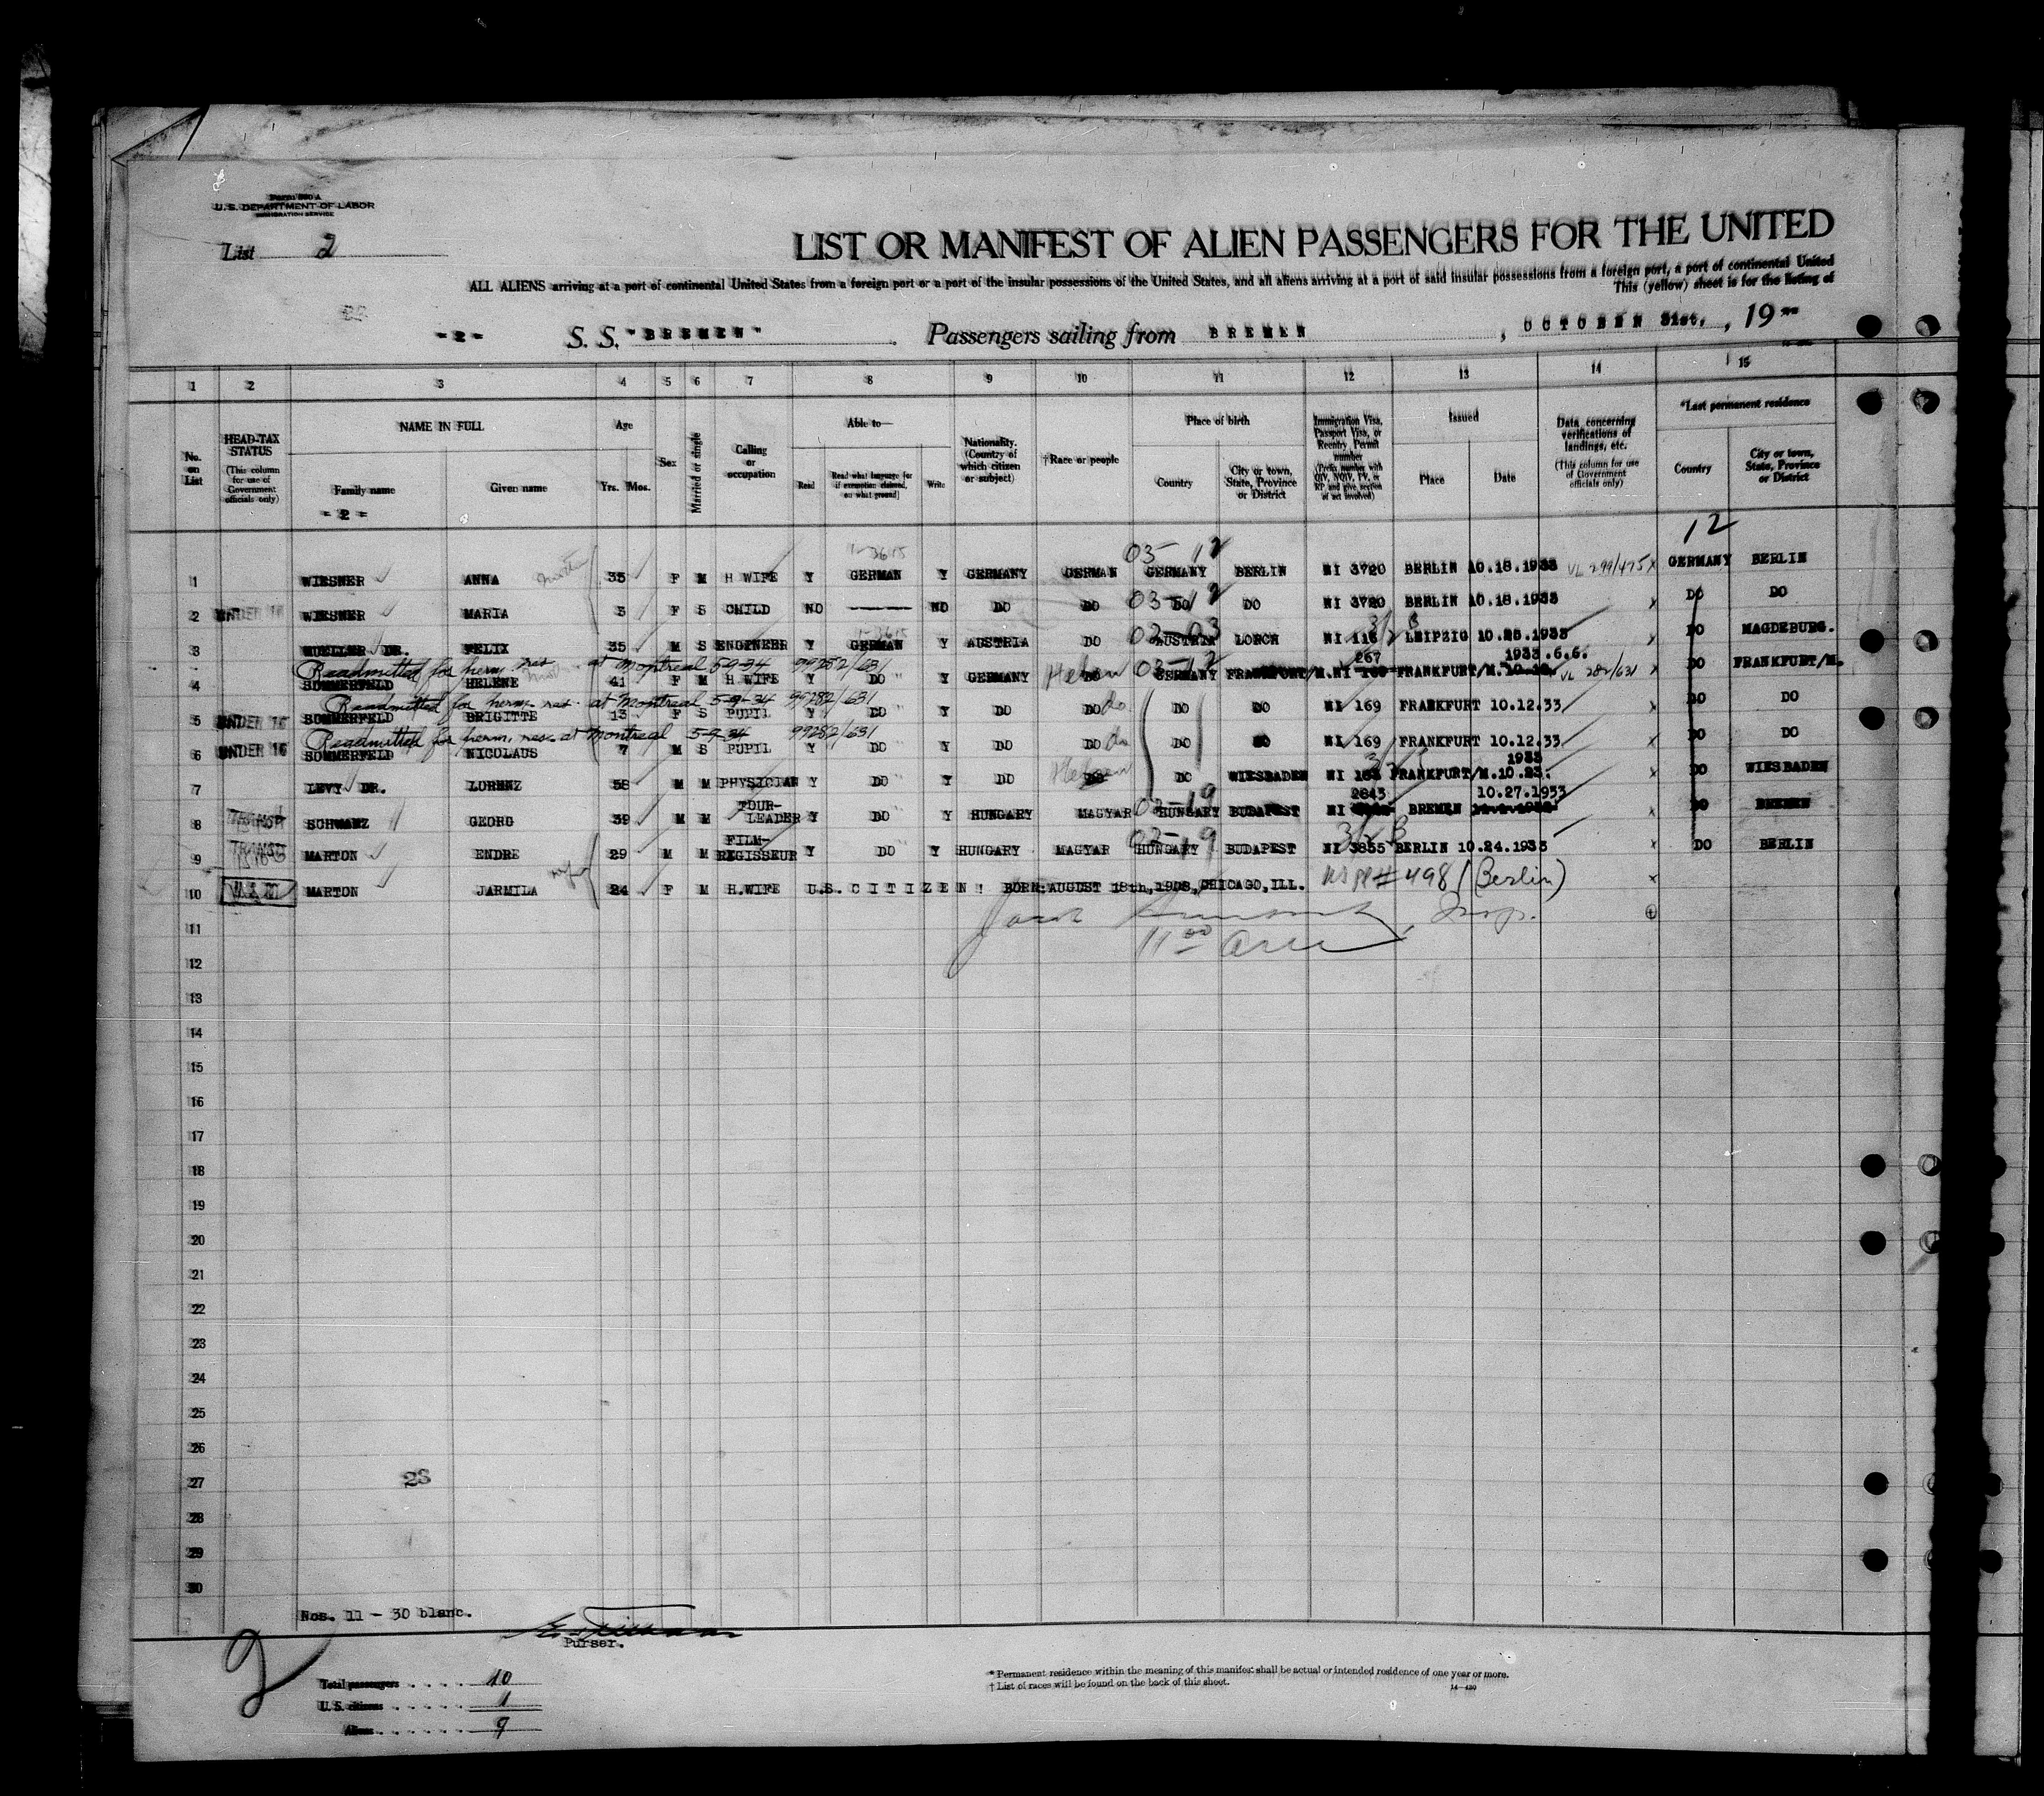 Form 500 A
U.S. DEPARTMENT OF LABOR
IMMIGRATION SERVICE
List 2
LIST OR MANIFEST OF ALIEN PASSENGERS FOR THE UNITED
ALL ALIENS arriving at a port of continental United States from a foreign port or a port of the insular possessions of the United States, and all aliens arriving at a port of said insular possessions from a foreign port, a port of continental United
This (yellow) sheet is for the listing of
- 2 - S. S. "BREMEN" Passengers sailing from BREMEN , OCTOBER 31st, , 19
1 2 3 4 5 6 7 8 9 10 11 12 13 14 15
No. on List
HEAD-TAX STATUS (This column for use of Government officials only)
NAME IN FULL Family name Given name
- 2 -
Age Yrs. Mos.
Sex
Married or single
Calling or occupation
Able to— Read Read what language [or if exemption claimed, on what ground] Write
Nationality. (Country of which citizen or subject)
†Race or people
Place of birth Country City or town, State, Province or District
Immigration Visa, Passport Visa, or Reentry Permit number (Prefix number with QIV, NQIV, PV, or RP and give section of act involved)
Issued Place Date
Data concerning verifications of landings, etc. (This column for use of Government officials only)
*Last permanent residence Country City or town, State, Province or District
12
03-12
1 WIESNER ANNA 35 F M H WIFE Y GERMAN Y GERMANY GERMAN GERMANY BERLIN NI 3720 BERLIN 10.18.1933 VL 299/475 x GERMANY BERLIN
2 UNDER 16 WIESNER MARIA 3 F S CHILD NO ——— NO DO DO 03-12 DO DO NI 3720 BERLIN 10.18.1933 x DO DO
3 MUELLER DR. FELIX 35 M S ENGENEER Y GERMAN Y AUSTRIA DO 02-03 AUSTRIA LORCH NI 116 LEIPZIG 10.25.1933 x DO MAGDEBURG.
Readmitted for perm. res. at Montreal 5-9-34 99282/631
267 1933.6.6.
4 SOMMERFELD HELENE 41 F M H WIFE Y DO " Y GERMANY Hebrew DO 03-12 GERMANY FRANKFURT/M. NI 169 FRANKFURT/M. 10.12. VL 282/631 x DO FRANKFURT/M.
Readmitted for perm. res. at Montreal 5-9-34 99282/631
5 UNDER 16 SOMMERFELD BRIGITTE 13 F S PUPIL Y DO " Y DO DO do DO DO NI 169 FRANKFURT 10.12.33 x DO DO
Readmitted for perm. res. at Montreal 5-9-34 99282/631
6 UNDER 16 SOMMERFELD NICOLAUS 7 M S PUPIL Y DO " Y DO DO do DO DO NI 169 FRANKFURT 10.12.33 x DO DO
1933
7 LEVY DR. LORENZ 58 M M PHYSICIAN Y DO " Y DO Hebrew DO DO WIESBADEN NI 183 FRANKFURT/M.10.23. x DO WIESBADEN
2843 10.27.1933
8 TRANSIT SCHWARZ GEORG 39 M M TOUR-LEADER Y DO " Y HUNGARY MAGYAR 02-19 HUNGARY BUDAPEST NI BREMEN x DO BREMEN
9 TRANSIT MARTON ENDRE 29 M M FILM-REGISSEUR Y DO " Y HUNGARY MAGYAR 02-19 HUNGARY BUDAPEST NI 3855 BERLIN 10.24.1933 x DO BERLIN
10 MARTON wife JARMILA 24 F M H.WIFE U.S. CITIZEN! BORN: AUGUST 18th, 1908, CHICAGO, ILL. US PP# 498 (Berlin) x
11
12
13
14
15
16
17
18
19
20
21
22
23
24
25
26
27
28
29
30
23
Nos. 11 - 30 blanc.
Purser.
2
Total passengers 10
U.S. citizens 1
Aliens 9
* Permanent residence within the meaning of this manifest shall be actual or intended residence of one year or more.
† List of races will be found on the back of this sheet.
14—430